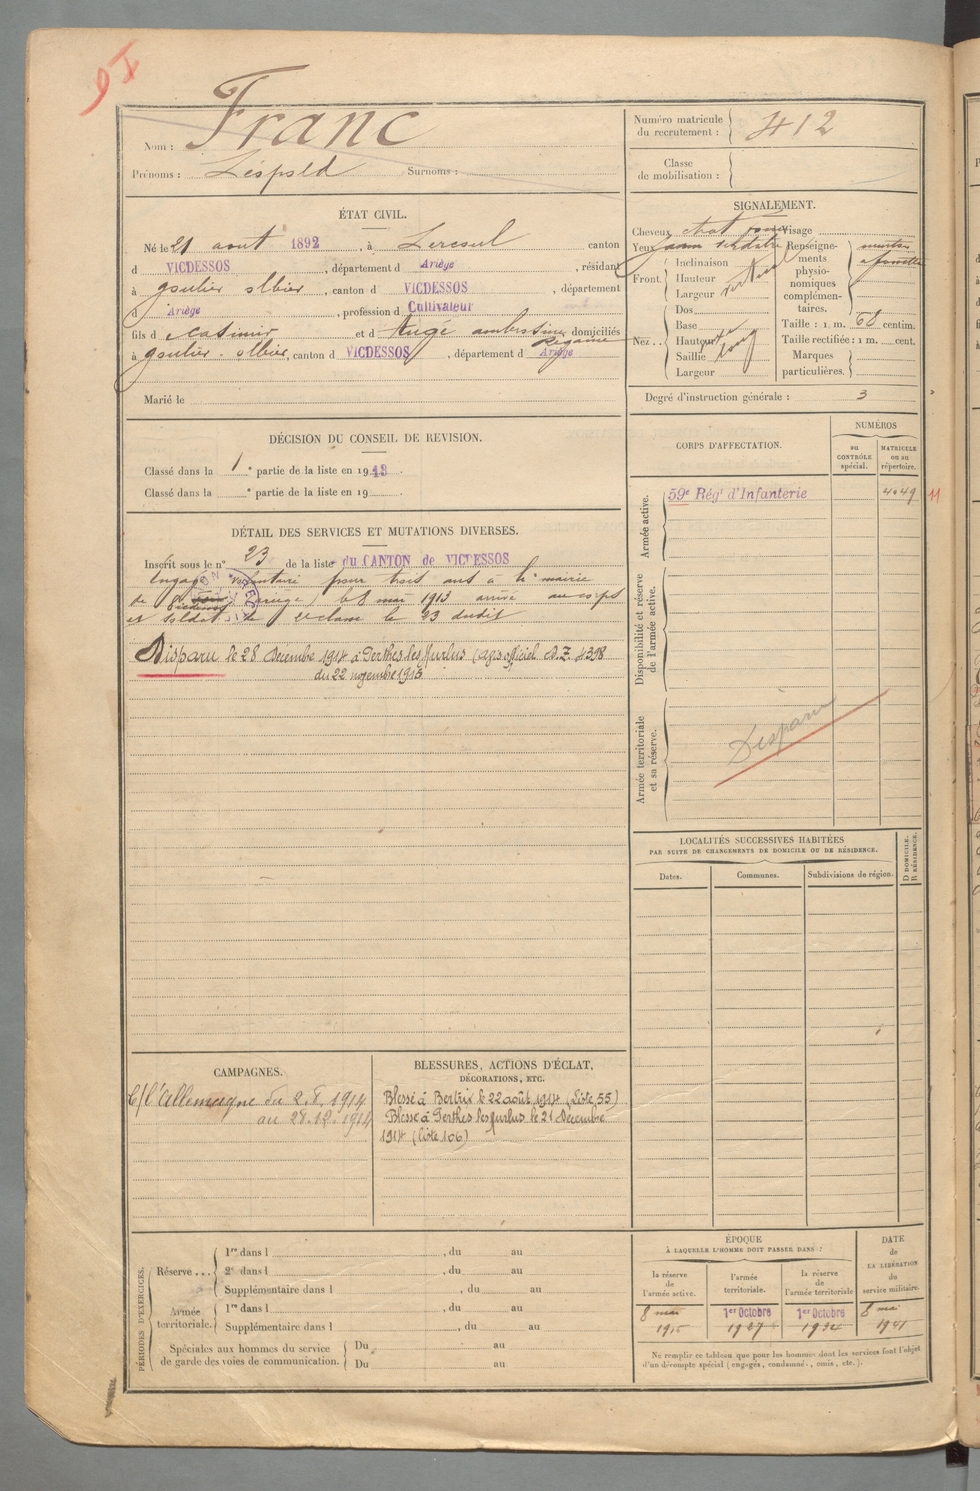 Nom : Franc
Prénoms : Léopold Surnoms :
Numéro matricule du recrutement : 412
Classe de mobilisation :
ÉTAT CIVIL.
Né le 21 aout 1892, à Lercoul canton
d VICDESSOS, département d Ariège, résidant
à goulier olbier, canton d VICDESSOS, département
d Ariège, profession d Cultivateur
fils d Casimir et d Augé ambrosine Régamie domiciliés
à goulier-olbier, canton d VICDESSOS, département d Ariège
Marié le
SIGNALEMENT.
Cheveux chat Visage
Yeux Renseignements physionomiques complémentaires.
Front. Inclinaison
Hauteur
Largeur
Nez.. Dos
Base
Hauteur
Saillie
Largeur
menton à fossette
Taille : 1 m. 68 centim.
Taille rectifiée : 1 m. cent.
Marques particulières.
Degré d'instruction générale : 3
DÉCISION DU CONSEIL DE REVISION.
Classé dans la 1e partie de la liste en 1913.
Classé dans la e partie de la liste en 19
DÉTAIL DES SERVICES ET MUTATIONS DIVERSES.
Inscrit sous le n° 23 de la liste du CANTON de VICDESSOS
Engagé volontaire pour trois ans à la mairie
de (ariège) le 8 mai 1913 arrivé au corps
et soldat de 2e classe le 23 dudit
Disparu le 28 Décembre 1914 à Perthes les Hurlus (avis officiel A.Z. 4398
du 22 novembre 1915
CORPS D'AFFECTATION.
NUMÉROS
au CONTRÔLE spécial.
MATRICULE ou au répertoire.
Armée active.
59e Régt d'Infanterie 4049 11
Disponibilité et réserve de l'armée active.
Armée territoriale et sa réserve.
Disparu
LOCALITÉS SUCCESSIVES HABITÉES
PAR SUITE DE CHANGEMENTS DE DOMICILE OU DE RÉSIDENCE.
Dates. Communes. Subdivisions de région. D DOMICILE. R RÉSIDENCE.
CAMPAGNES.
C/ l'Allemagne du 2.8.1914
au 28.12.1914
BLESSURES, ACTIONS D'ÉCLAT,
DÉCORATIONS, ETC.
Blessé à Bertrix le 22 août 1914 (Liste 55)
Blessé à Perthes les Hurlus le 21 Décembre
1914 (liste 106)
PÉRIODES D'EXERCICES.
Réserve... 1re dans l , du au
2e dans l , du au
Supplémentaire dans l , du au
Armée territoriale. 1re dans l , du au
Supplémentaire dans l , du au
Spéciales aux hommes du service Du au
de garde des voies de communication. Du au
ÉPOQUE
À LAQUELLE L'HOMME DOIT PASSER DANS :
la réserve de l'armée active.
l'armée territoriale.
la réserve de l'armée territoriale
DATE de LA LIBÉRATION du service militaire.
8 mai 1er Octobre 1er Octobre 8 mai
1915 1927 1934 1941
Ne remplir ce tableau que pour les hommes dont les services font l'objet
d'un décompte spécial (engagés, condamné, omis, etc.).